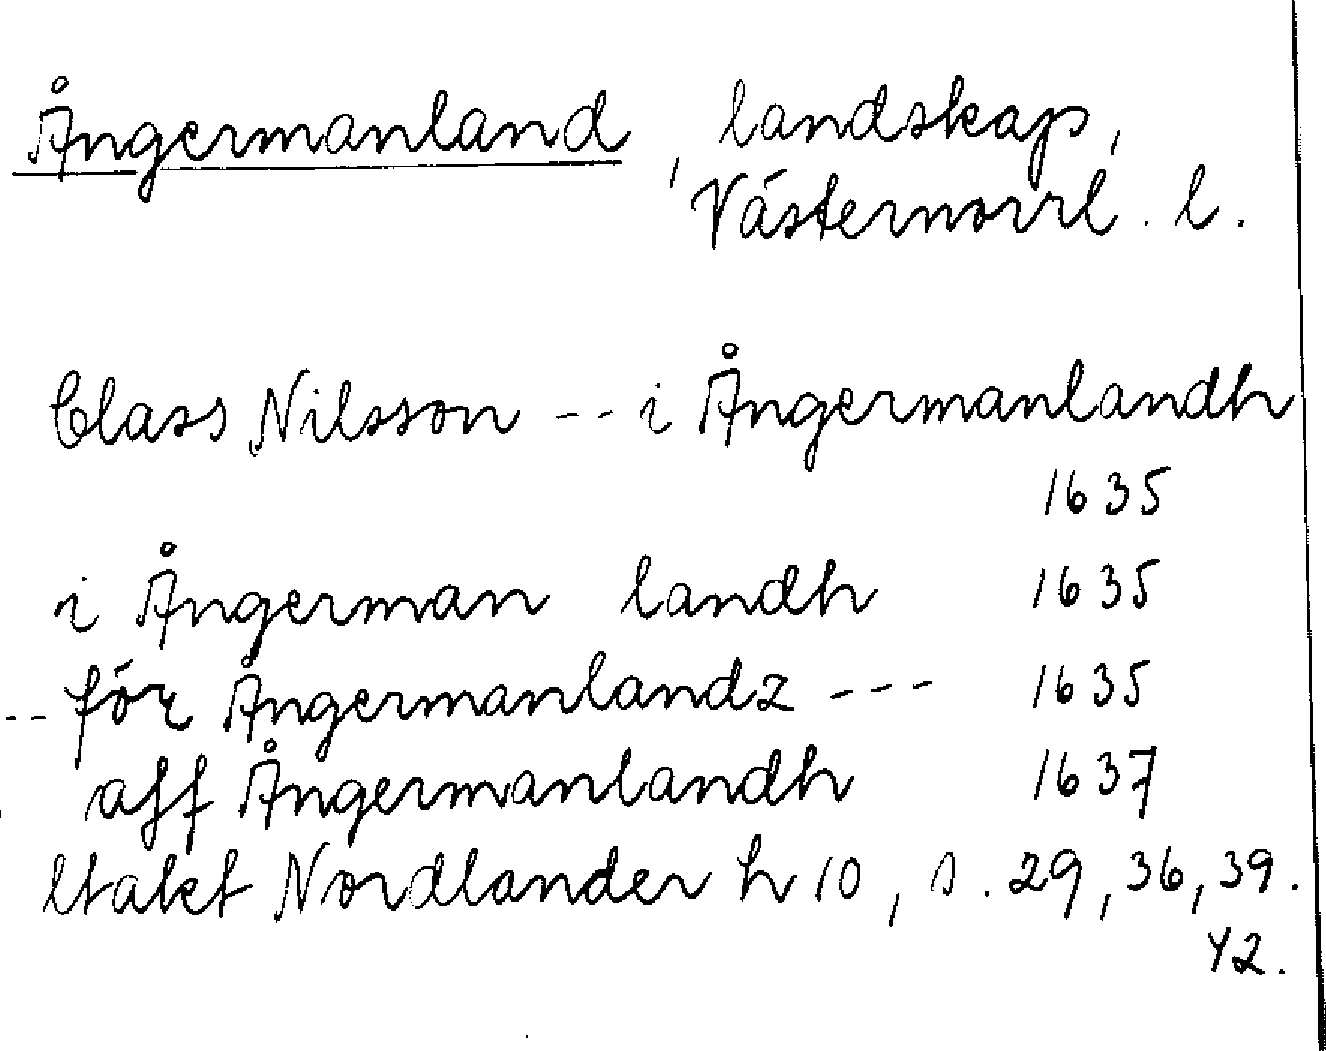 Ångermanland, landskap,
Västernorrl. l.
Class Nilsson -- i Ångermanlandh
1635
i Ångerman landh 1635
-- för Ångermanlandz --- 1635
aff Ångermanlandh 1637
Utakt Nordlander h 10, s. 29, 36, 39.
42.